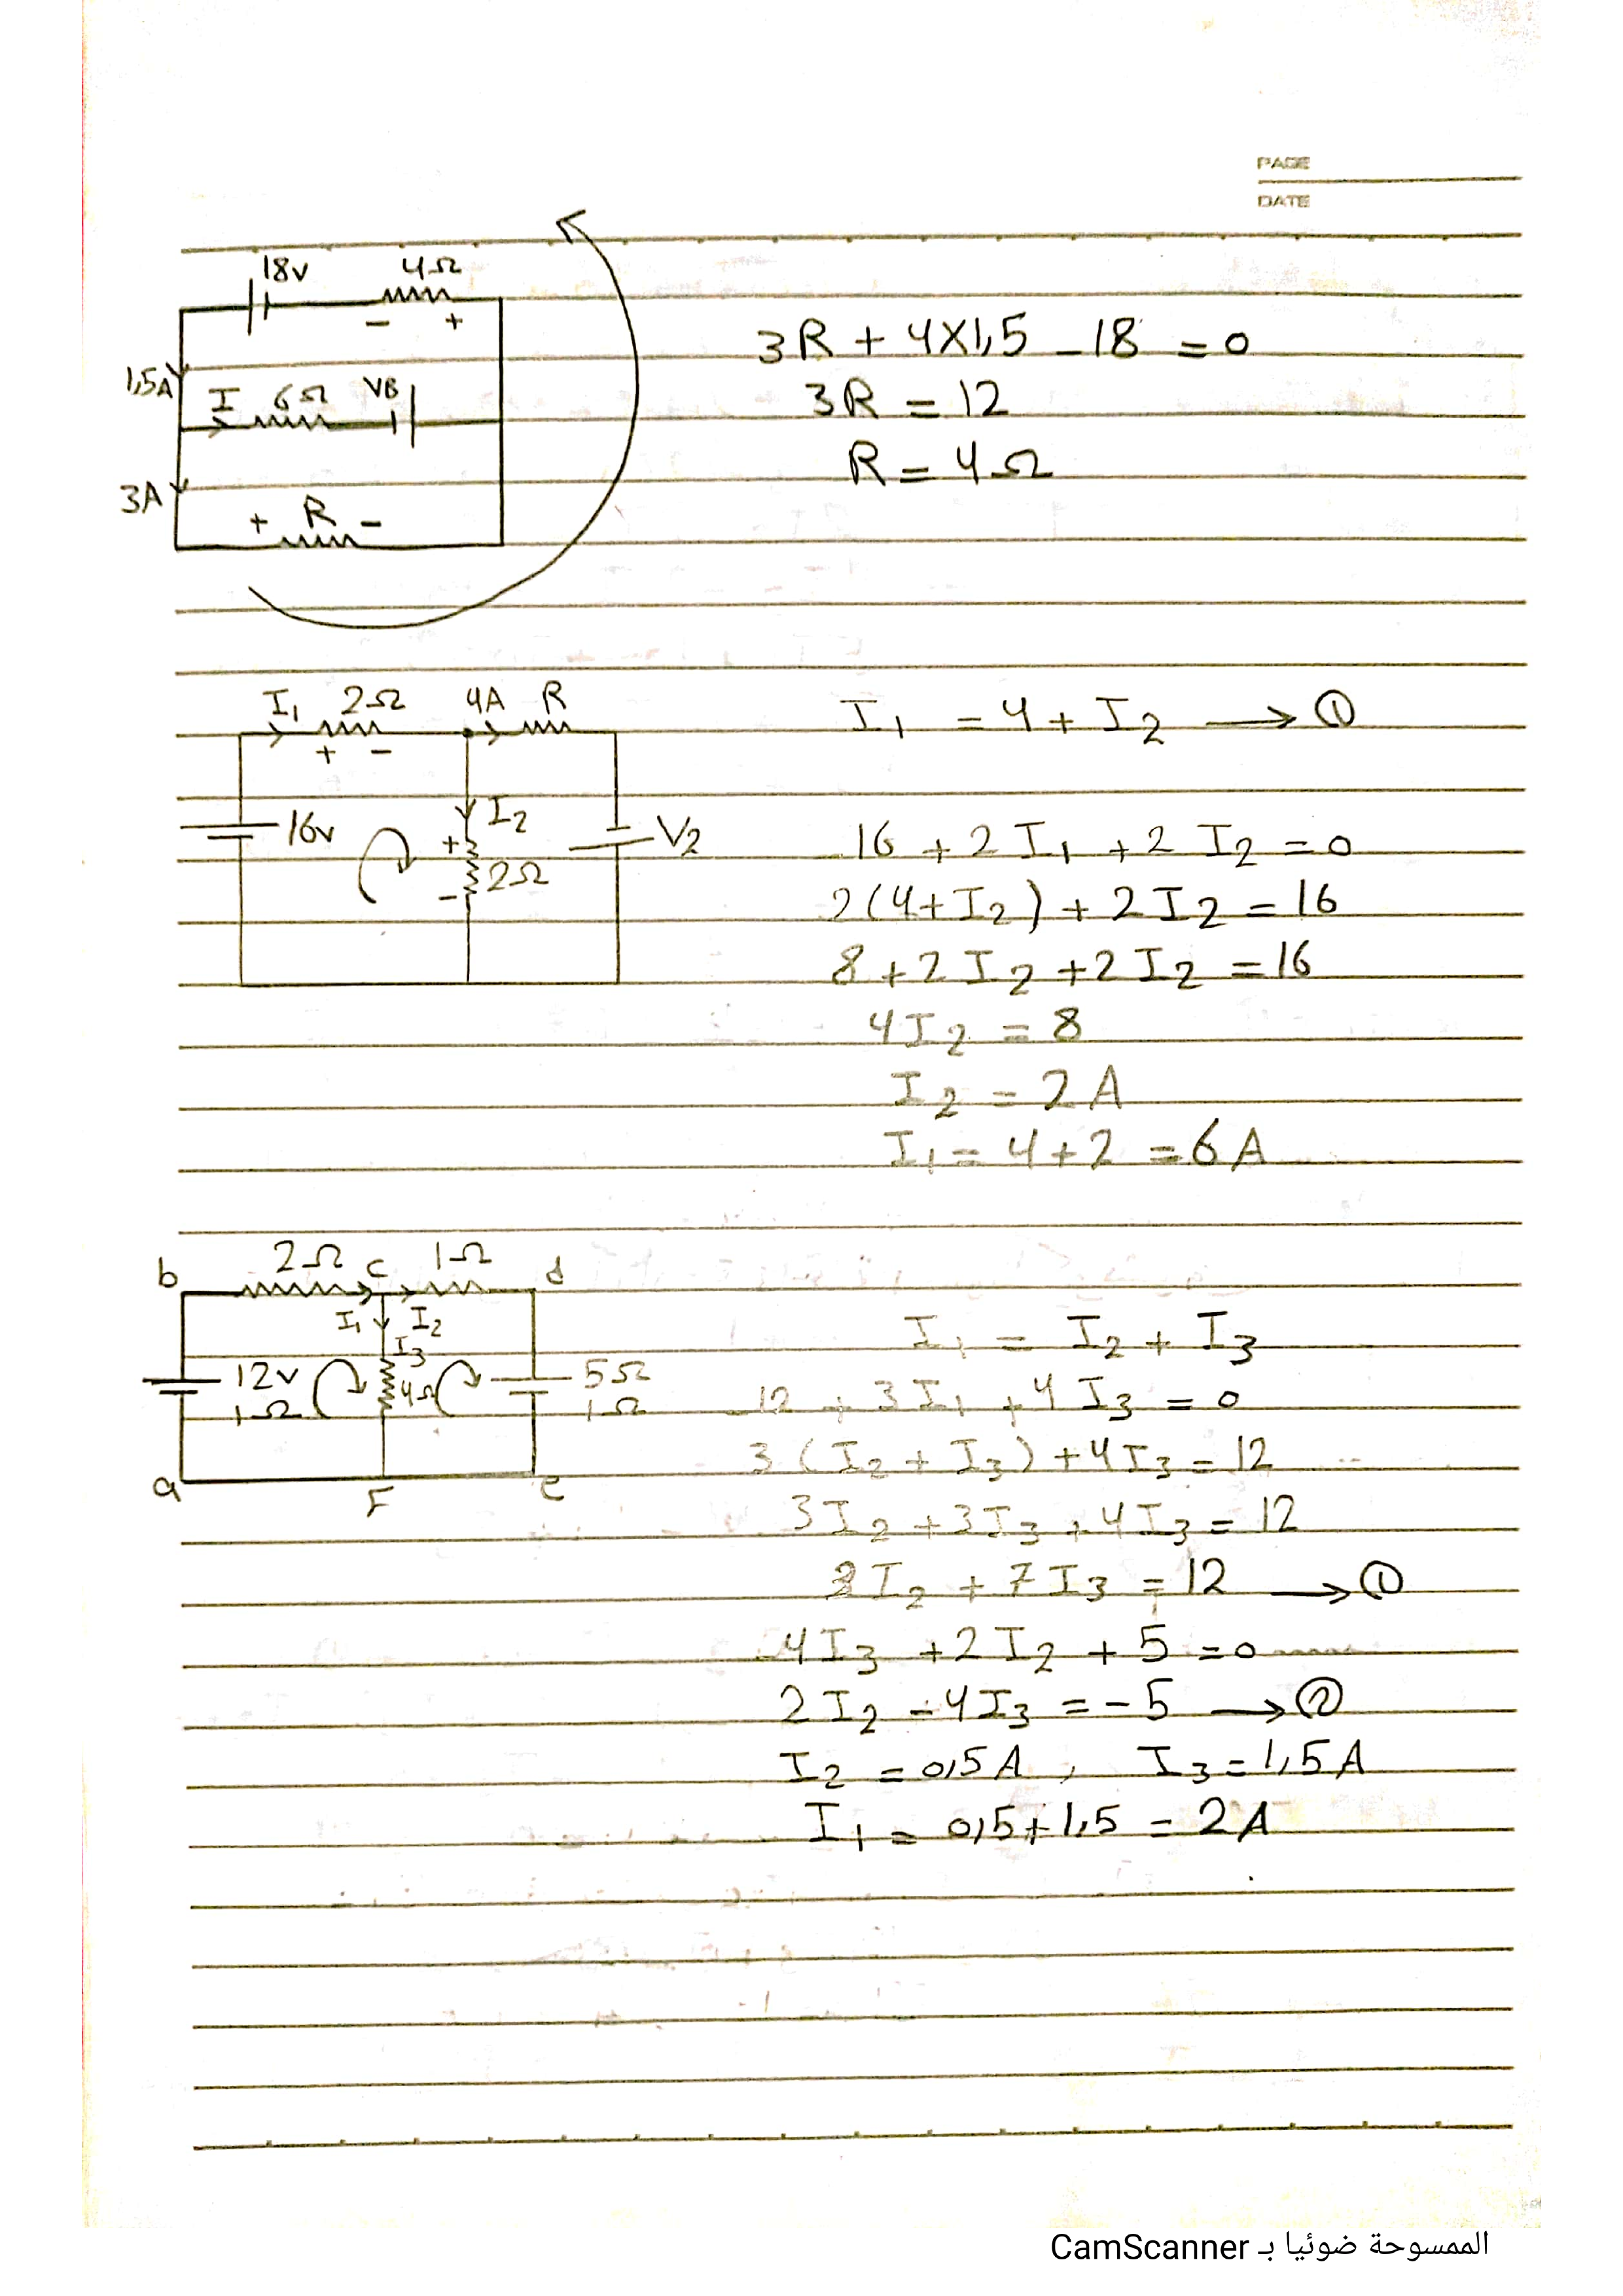 PAGE
DATE
18v 4Ω
- +
1,5A
I 6Ω VB
3A
+ R -
3R + 4×1,5 - 18 = 0
3R = 12
R = 4Ω
I1 2Ω 4A R
+ -
16v
I2
+
2Ω
-
V2
I1 = 4 + I2 → ①
-16 + 2I1 + 2I2 = 0
2(4+I2) + 2I2 = 16
8 + 2I2 + 2I2 = 16
4I2 = 8
I2 = 2A
I1 = 4 + 2 = 6A
b 2Ω c 1Ω d
I1 I2
I3
12v 4Ω 5Ω
1Ω 1Ω
a F e
I1 = I2 + I3
-12 + 3I1 + 4I3 = 0
3(I2 + I3) + 4I3 = 12
3I2 + 3I3 + 4I3 = 12
3I2 + 7I3 = 12 → ①
-4I3 + 2I2 + 5 = 0
2I2 - 4I3 = -5 → ②
I2 = 0,5A , I3 = 1,5A
I1 = 0,5 + 1,5 = 2A
الممسوحة ضوئيا بـ CamScanner